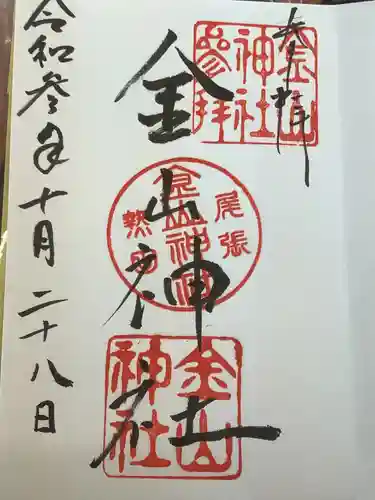 奉拝
金山神社
令和參年十月二十八日
金山
神社
參拝
尾張
金山神社
熱田
金山
神社